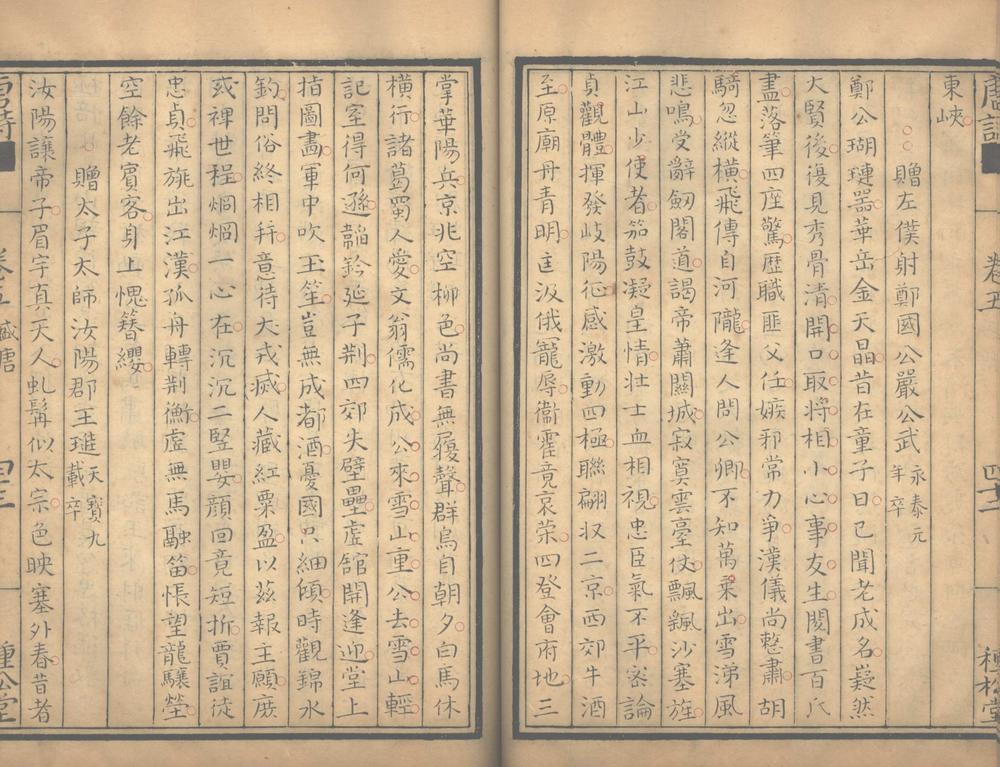 唐詩 卷五 四十二 種松堂
東峽
贈左僕射鄭國公嚴公武 永泰元年卒
鄭公瑚璉器華岳金天晶昔在童子日已聞老成名嶷然
大賢後復見秀骨清開口取將相小心事友生閱書百氏
盡落筆四座驚歷職匪父任嫉邪常力爭漢儀尚整肅胡
騎忽縱橫飛傳自河隴逢人問公卿不知萬乘出雪涕風
悲鳴受辭劒閣道謁帝蕭關城寂寞雲臺仗飄颻沙塞旌
江山少使者笳鼓凝皇情壯士血相視忠臣氣不平密論
貞觀體揮發岐陽征感激動四極聯翩収二京西郊牛酒
至原廟丹青明匡汲俄寵辱衞霍竟哀榮四登會府地三
掌華陽兵京兆空柳色尚書無履聲群烏自朝夕白馬休
橫行諸葛蜀人愛文翁儒化成公來雪山重公去雪山輕
記室得何遜韜鈐延子荆四郊失壁壘虛舘開逢迎堂上
指圖畫軍中吹玉笙豈無成都酒憂國只細傾時觀錦水
釣問俗終相并意待犬戎滅人藏紅粟盈以茲報主願庶
或裨世程烱烱一心在沉沉二竪嬰顏回竟短折賈誼徒
忠貞飛旐出江漢孤舟轉荆衡虛無馬融笛悵望龍驤塋
空餘老賓客身上愧簪纓
贈太子太師汝陽郡王璡 天寶九載卒
汝陽讓帝子眉宇真天人虬髯似太宗色映塞外春昔者
唐詩 卷五 盛唐 四十三 種松堂